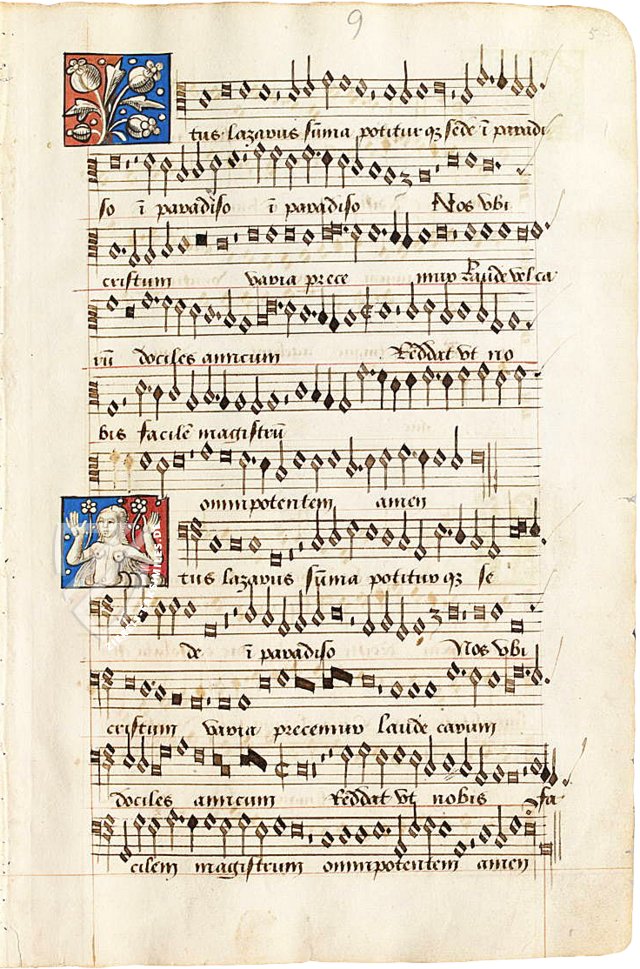 9
tus lazarus sūma potitur qz sede ī paradi
so ī paradiso ī paradiso Nos vbi
cristum varia prece mur Laude vel ca
rū dociles amicum Reddat vt no
bis facilē magistrū
omnipotentem amen
tus lazarus sūma potitur qz se
de ī paradiso Nos vbi
cristum varia precemur laude carum
dociles amicum Reddat vt nobis fa
cilem magistrum omnipotentem amen